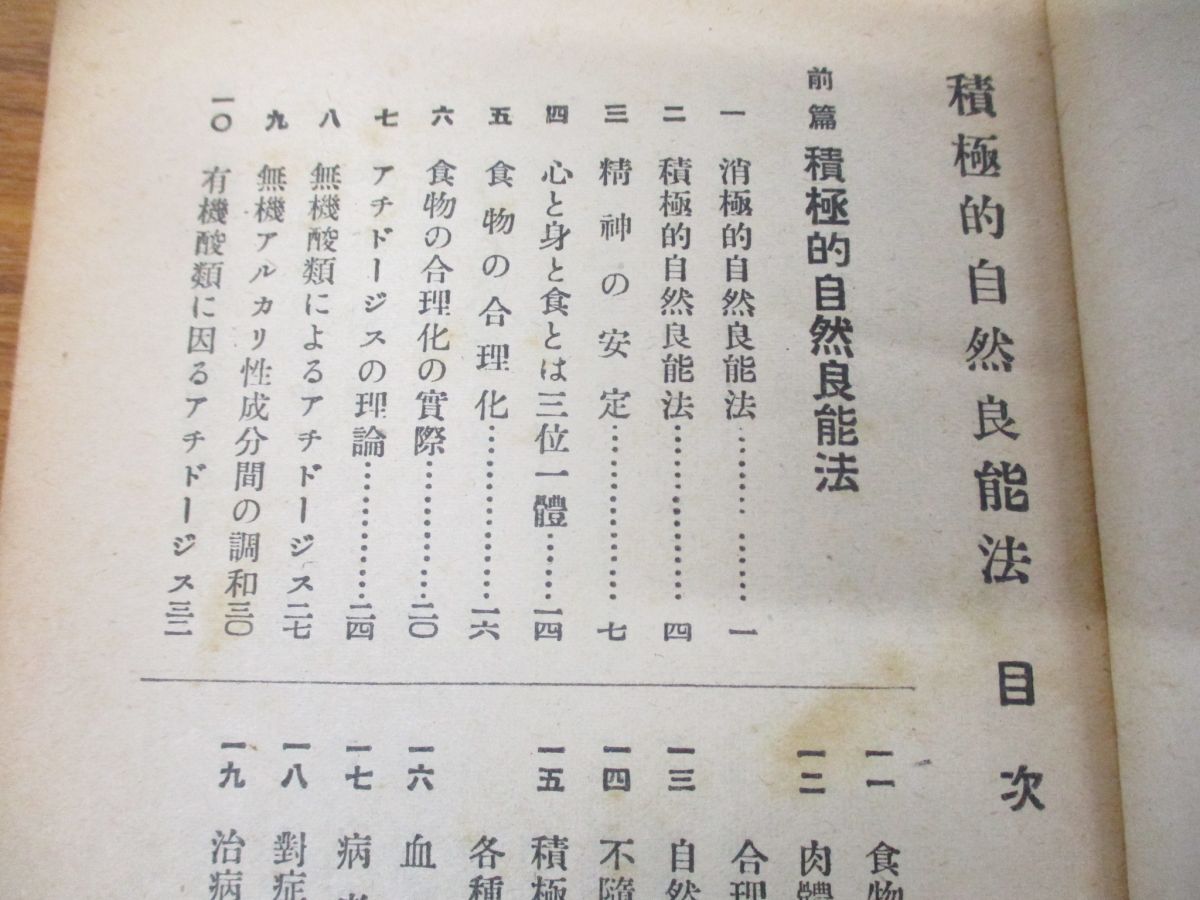 積極的自然良能法 目次
前篇 積極的自然良能法
一 消極的自然良能法…………一
二 積極的自然良能法…………四
三 精神の安定…………七
四 心と身と食とは三位一體……一四
五 食物の合理化…………一六
六 食物の合理化の實際…………二〇
七 アチドージスの理論…………二四
八 無機酸類によるアチドージス二七
九 無機アルカリ性成分間の調和三〇
一〇 有機酸類に因るアチドージス三二
一一 食物
一二 肉體
合理
一三 自然
一四 不隨
一五 積極
各種
一六 血
一七 病
一八 對症
一九 治病